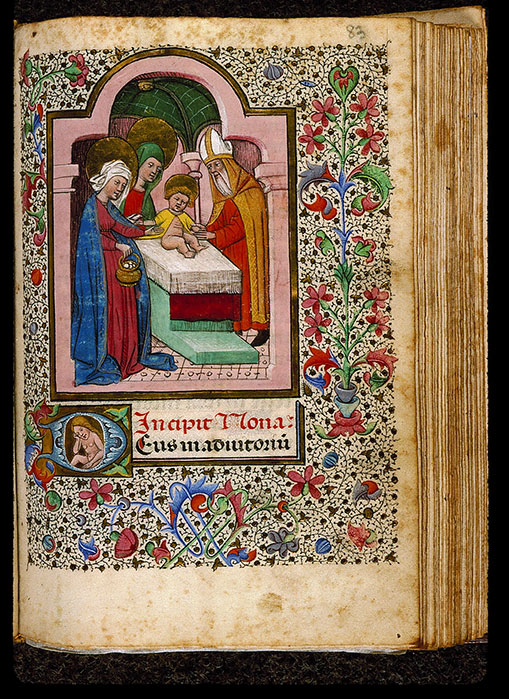 83
Incipit Nona:
Eus in adiutoriũ